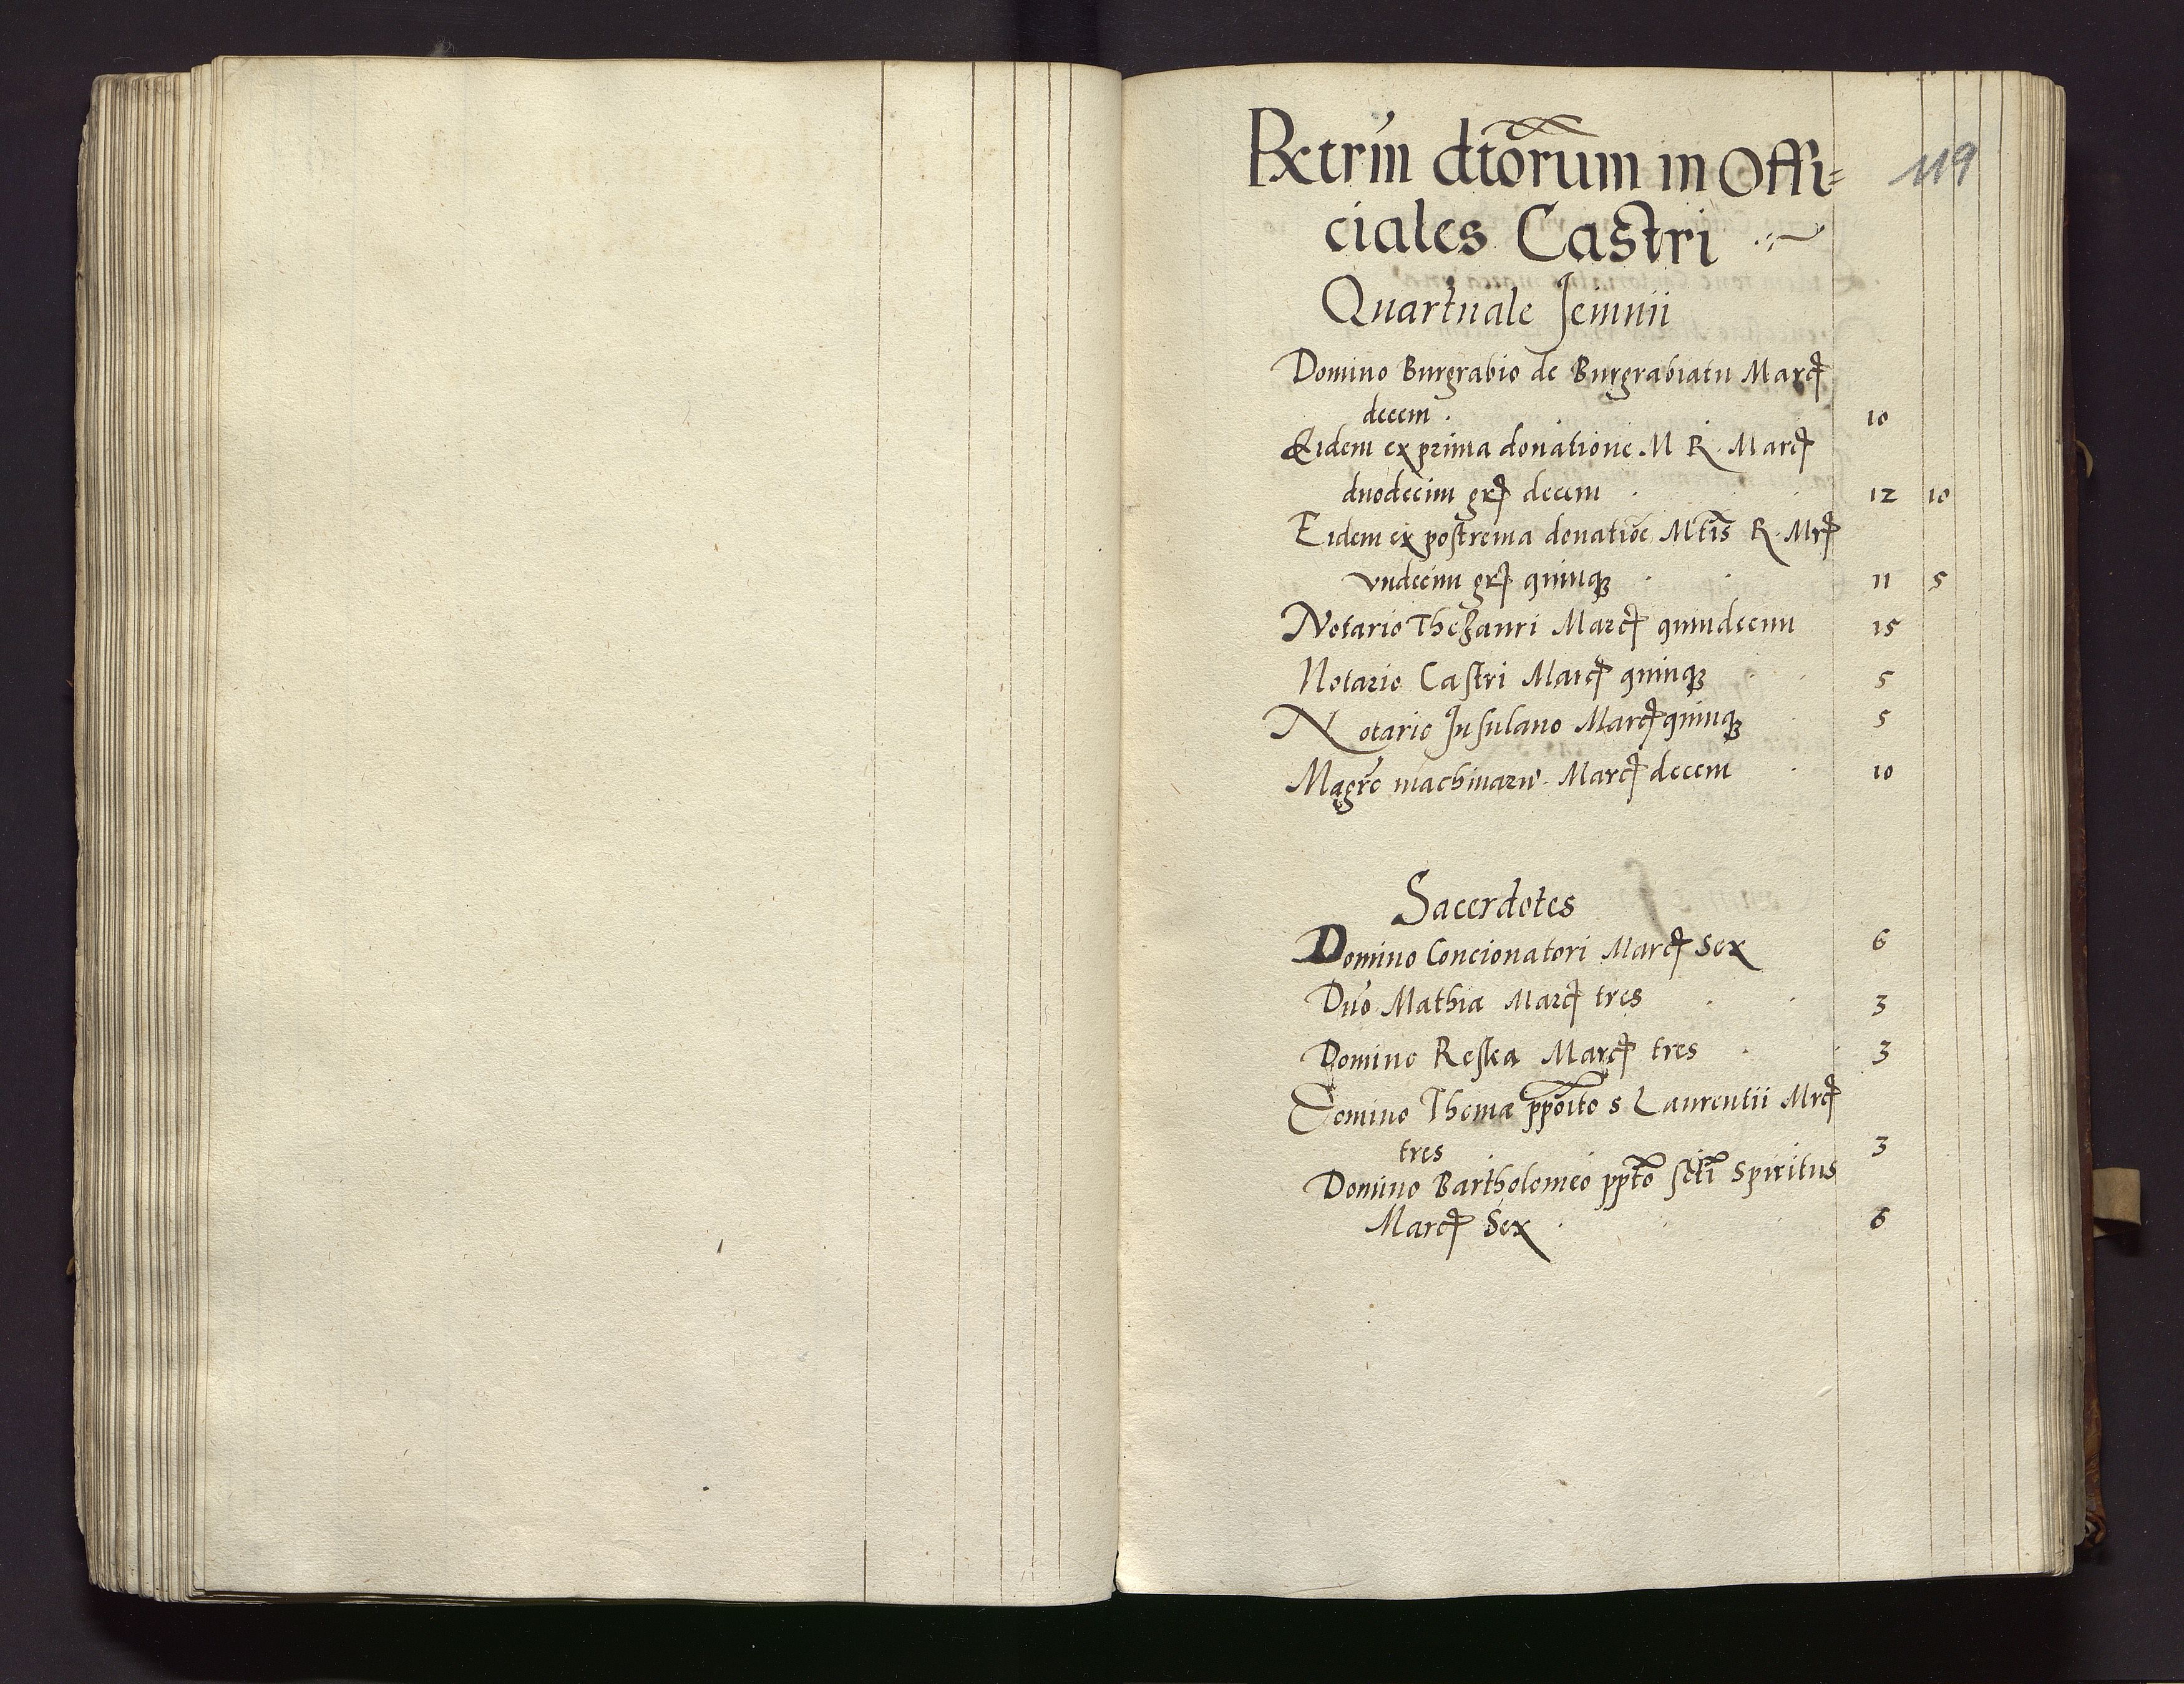 Rctrin dtorum in Offi=
119
ciales Castri
Quartuale Jeiunii
Domino Burgrabio de Burgrabiatu Marcꝭ
decem 10
Eidem ex prima donatione M R. Marcꝭ
duodecim grꝭ decem 12 10
Eidem ex postrema donatiōe Mtis R. Mrꝭ
vndecim grꝭ quinqꝫ 11 5
Notario Thezauri Marcꝭ quindecim 15
Notario Castri Marcꝭ quinqꝫ 5
Notario Insulano Marcꝭ quinqꝫ 5
Magro machinaru. Marcꝭ decem 10
Sacerdotes
Domino Concionatori Marcꝭ Sex 6
Dno Mathia Marcꝭ tres 3
Domino Reska Marcꝭ tres 3
Domino Thomæ ppoito s Laurentii Mrcꝭ
tres 3
Domino Bartholomeo ppto scti Spiritus
Marcꝭ Sex 6